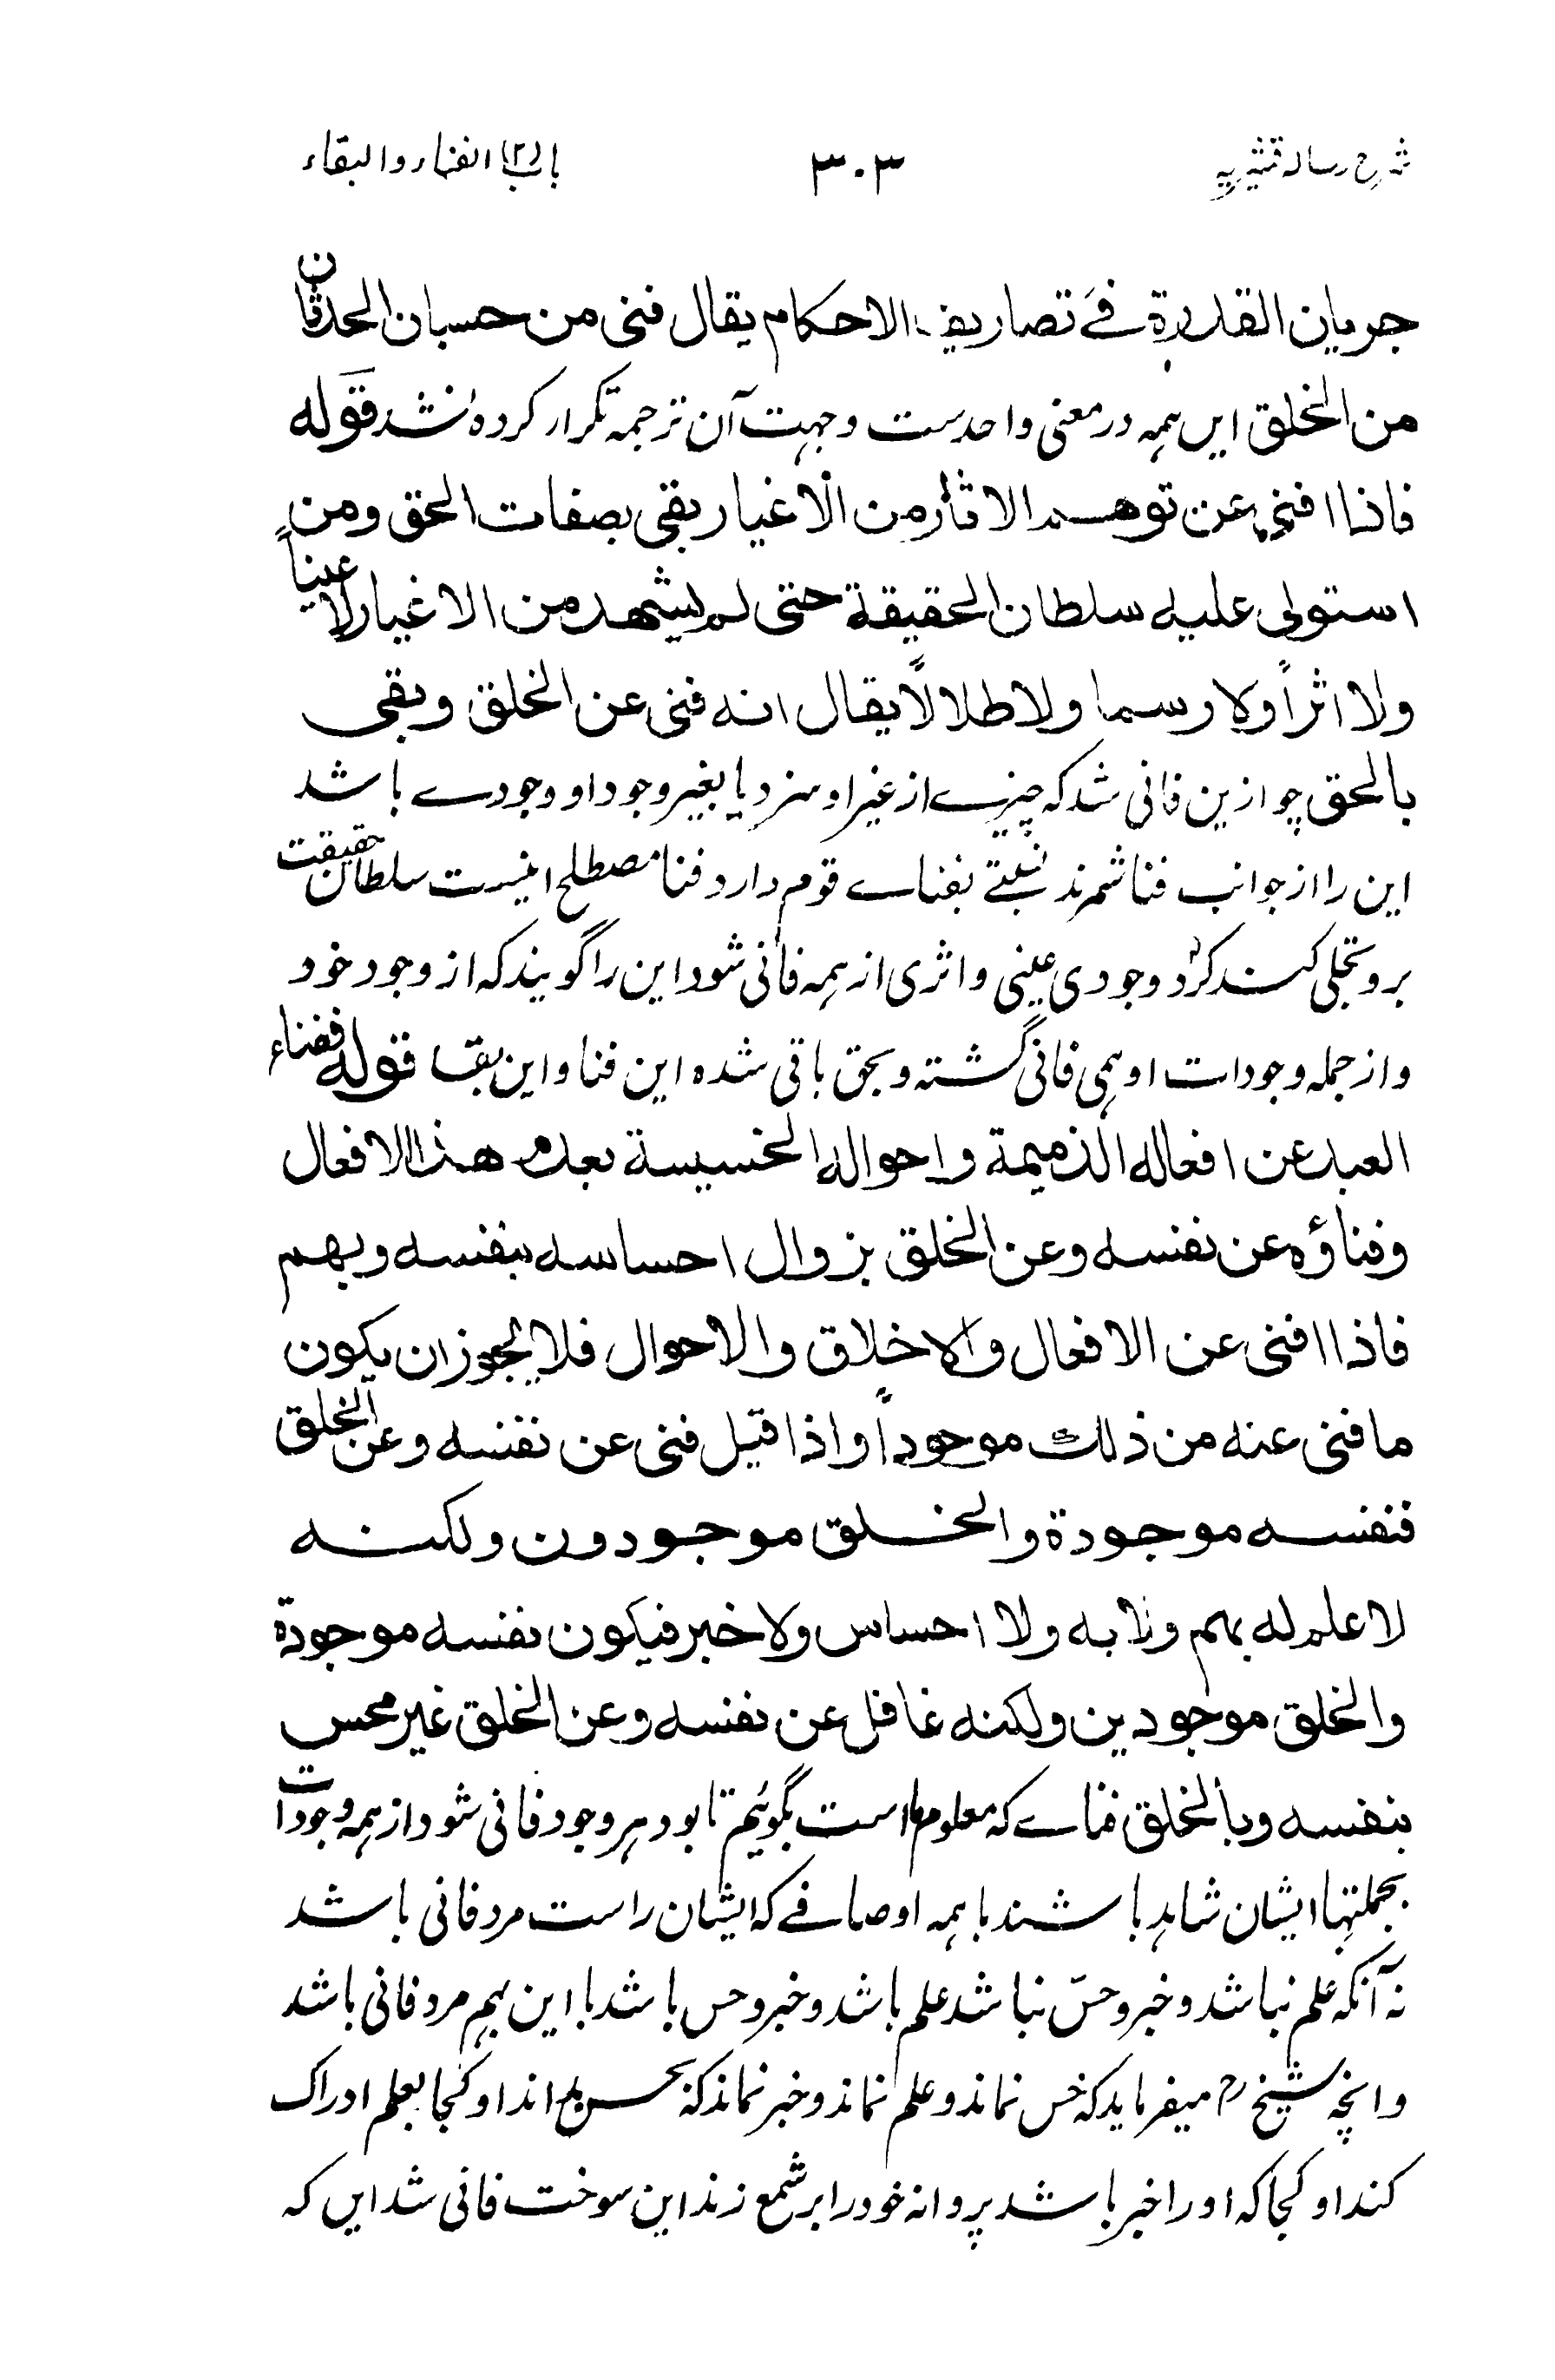 شرح رسالہ قشیریہ ۳۰۳ باب (۲) الفناء والبقاء
جریان القدرة فی تصاریف الاحکام یقال فنی من حسبان الحدثان
من الخلق ایں ہمہ در معنی واحدست وجہت آن ترجمہ تکرار کردہ نشد قولہ
فاذا افنی عن توهم الاثار من الاغیار بقی بصفات الحق ومن
استولی علیه سلطان الحقیقة حتی لم یشهد من الاغیار لا عیناً
ولا اثراً ولا رسما ولا طلالاً یقال انه فنی عن الخلق وبقی
بالحق چو ازین فانی شد کہ چیزے از غیر او سزد یا بغیر وجود او وجودے باشد
این را از جوانب فنا شمرند نسبتے بفناے قوم دارد فناء مصطلح اینست سلطان حقیقت
برو تجلی کند کز وجودی عینی و اثری از ہمہ فانی شود این را گویند کہ از وجود خود
و از جملہ وجودات او ہمی فانی گشتہ و بحق باقی شدہ این فنا و این بقا قوله ففناء
العبد عن افعاله الذمیمة واحواله الخسیسة بعدم هذا الافعال
وفناؤه عن نفسه وعن الخلق بزوال احساسه بنفسه وبهم
فاذا افنی عن الافعال والاخلاق والاحوال فلا یجوز ان یکون
ما فنی عنه من ذلك موجوداً واذا قیل فنی عن نفسه وعن الخلق
فنفسه موجودة والخلق موجودون ولکنه
لا علم له بهم ولا به ولا احساس ولا خبر فیکون نفسه موجودة
والخلق موجودین ولکنه غافل عن نفسه وعن الخلق غیر محس
بنفسه وبالخلق فناے کہ معلوم ما است بگوئیم تا بود ہر وجود فانی شود از ہمہ وجودات
بجملتہا ایشان شاہد باشند با ہمہ اوصافے کہ ایشان راست مرد فانی باشد
نہ آنکہ علم نباشد و خبر و حسّ نباشد علم باشد و خبر و حس باشد با این ہم مرد فانی باشد
و انچہ شیخ رح میفرماید کہ حس نماند و علم نماند و خبر نماند کہ بحس اند او کجا بعلم ادراک
کند او کجا کہ او را خبر باشد پروانہ خود را بر شمع زند این سوخت فانی شد ایں کہ